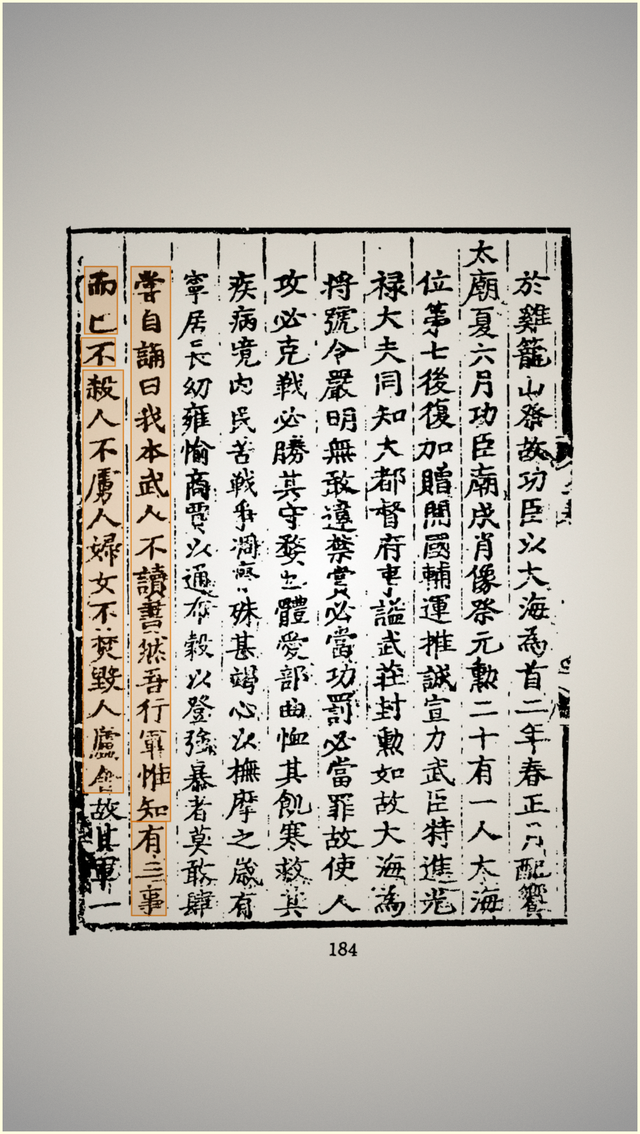 於雞籠山祭故功臣以大海為首二年春正月配饗
太廟夏六月功臣廟成肖像祭元勲二十有一人大海
位第七後復加贈開國輔運推誠宣力武臣特進光
祿大夫同知大都督府事謚武莊封勲如故大海為
將號令嚴明無敢違禁賞必當功罰必當罪故使人
攻必克戰必勝其守婺也體愛部曲恤其飢寒救其
疾病境内民苦戰爭凋瘵殊甚竭心以撫摩之歲有
寧居長幼雍愉商賈以通布穀以登強暴者莫敢肆
嘗自誦曰我本武人不讀書然吾行軍惟知有三事
而已不殺人不虜人婦女不焚毀人廬舍故其軍一
184